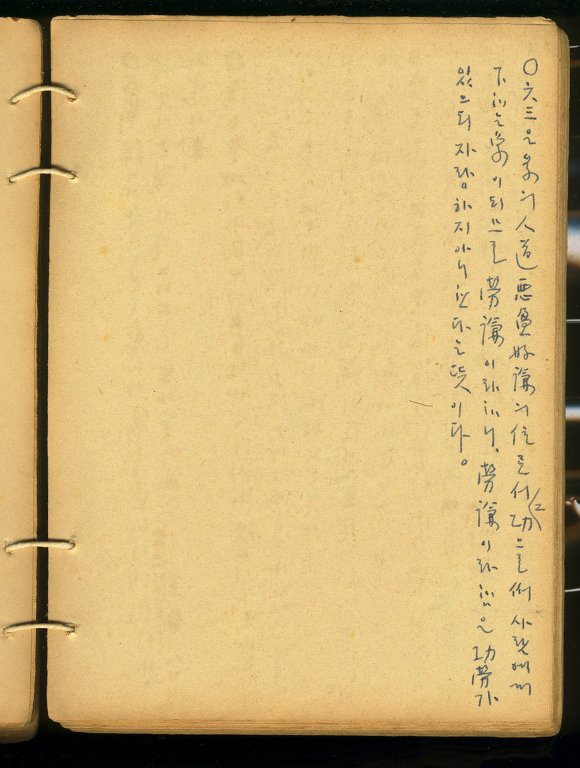 ○六三은 象의 人道悪盈好謙의 位로서 그功으로써 사람에게
下하는 象이 되므로 勞謙이라하니, 勞謙이라함은 功勞가
있으되 자랑하지 아니한다는 뜻이다。